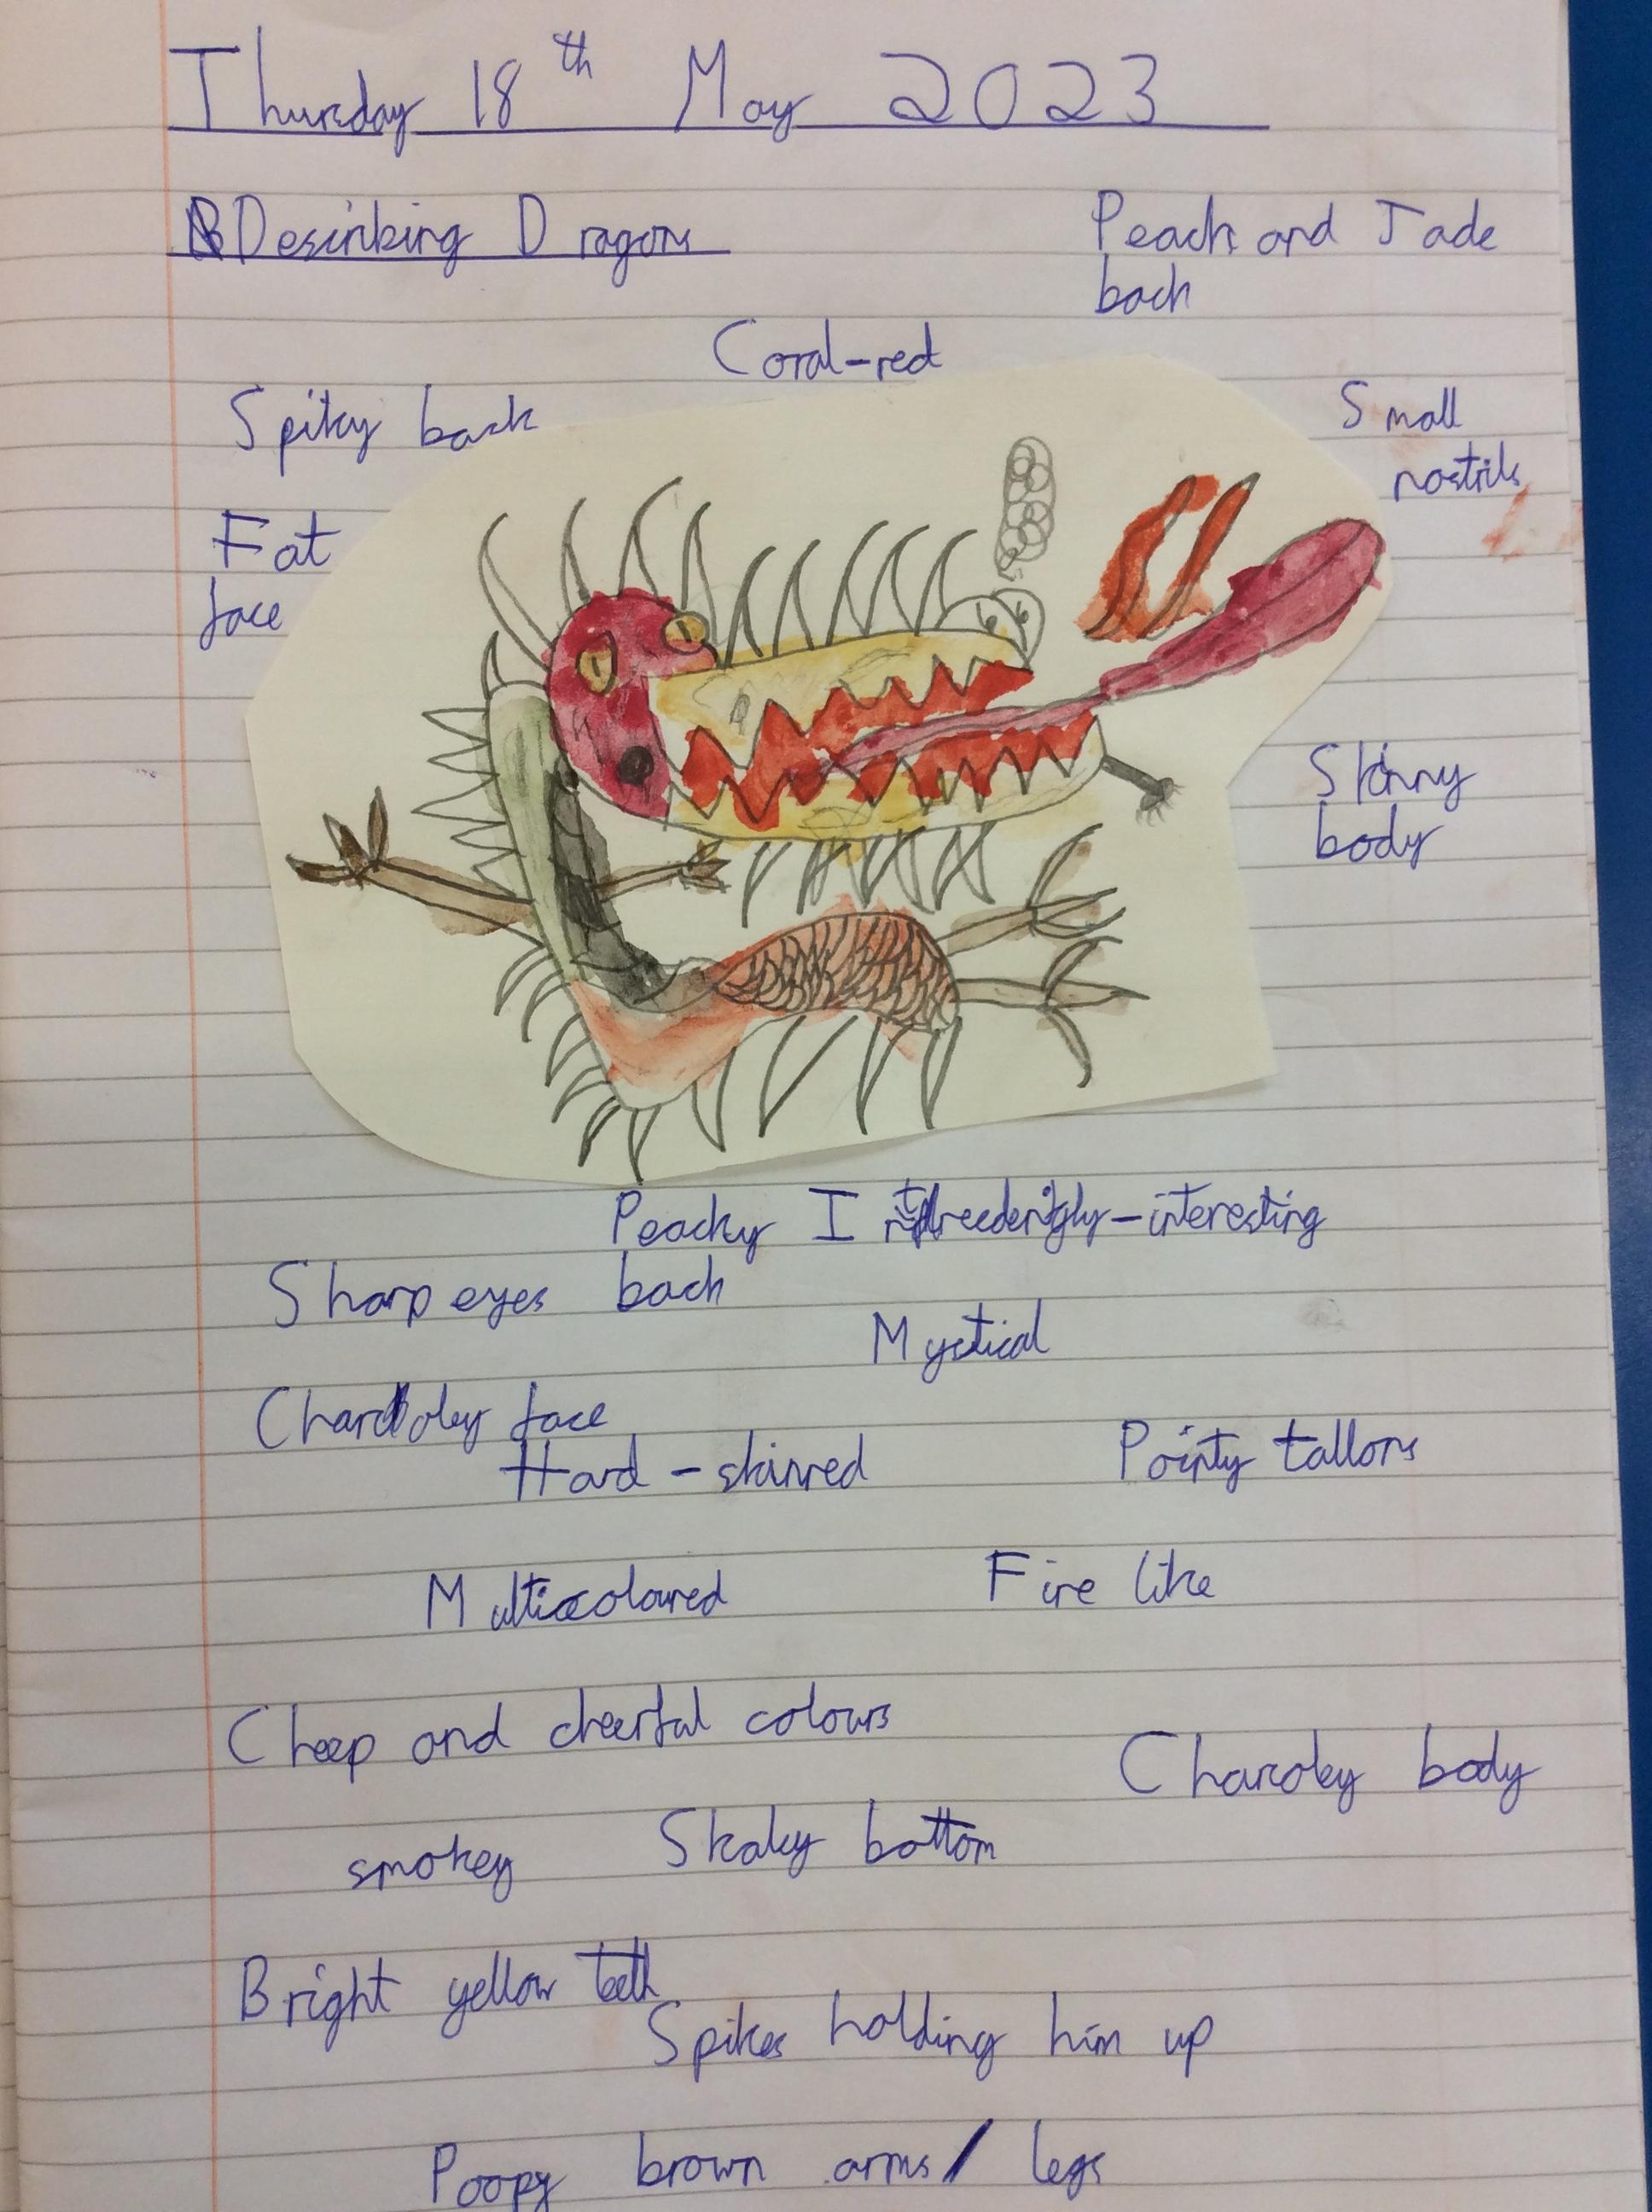 Thursday 18th May 2023
Describing Dragons
Peach and Jade
back
Coral-red
Spiky back
Small
nostrils
Fat
face
Skinny
body
Peachy
back
I -interesting
Sharp eyes
Mystical
Charcoley face
Hard-skinned
Pointy tallons
Multicoloured
Fire like
Cheep and cheerful colours
Charcoley body
smokey
Skaley bottom
Bright yellow teeth
Spikes holding him up
Poopy brown arms/legs